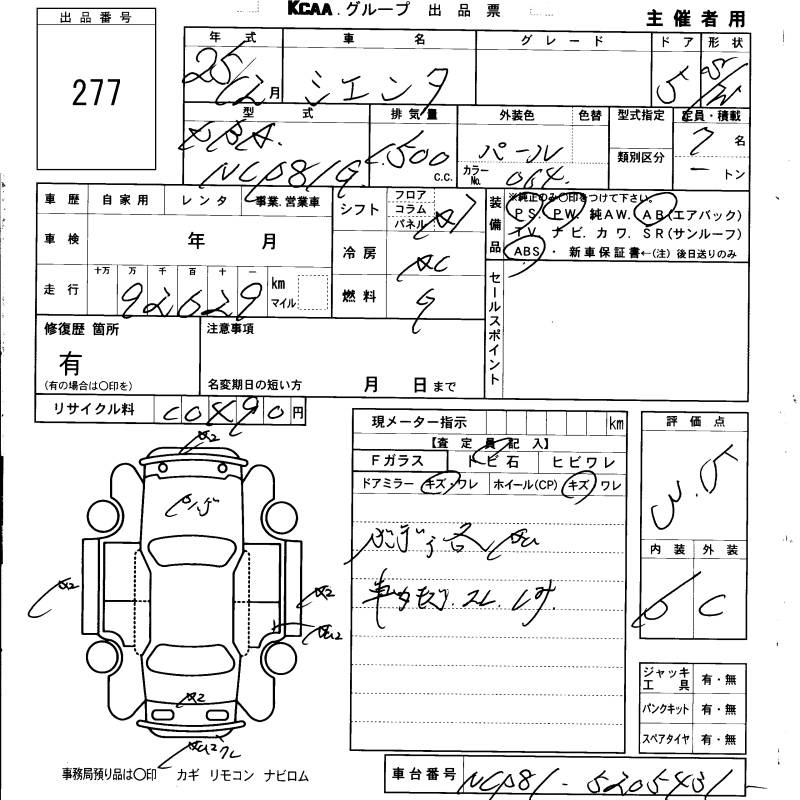 出品番号
277
KCAA グループ 出品票
主催者用
年式 車名 グレード ドア 形状
25/12月 シエンタ 5 5/W
型式 排気量 外装色 色替 型式指定 定員・積載
DBA 1,500 C.C. パール 7名
NCP81G カラーNo. 064 類別区分 ートン
車歴 自家用 レンタ 事業.営業車
車検 年 月
走行 十万 万 千 百 十 一 km マイル
92629
シフト フロア コラム パネル AT
冷房 AC
燃料 G
装備品
※純正のみ〇印をつけて下さい。
PS. PW. 純AW. AB(エアバック)
TV. ナビ. カワ. SR(サンルーフ)
ABS・ 新車保証書←(注)後日送りのみ
セールスポイント
修復歴 箇所
有
(有の場合は〇印を)
注意事項
名変期日の短い方 月 日まで
リサイクル料 C0490円
現メーター指示 km
【査定員記入】
Fガラス トビ石 ヒビワレ
ドアミラー キズ・ワレ ホイール(CP) キズ ワレ
車内 シミ
評価点
3.5
内装 外装
D C
A2
A2
A2
U2
A2
ジャッキ工具 有・無
パンクキット 有・無
スペアタイヤ 有・無
事務局預り品は〇印 カギ リモコン ナビロム
車台番号 NCP81-5205431